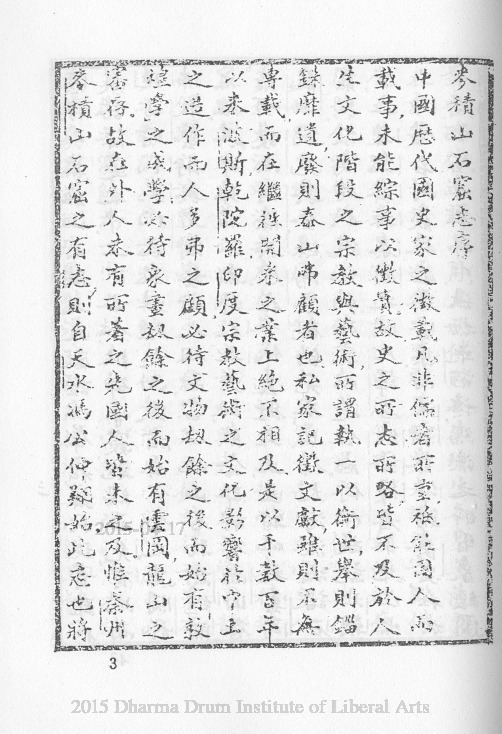 麥積山石窟志序
中國歷代國史家之徵載凡非儒者所重祗能因人而
載事未能綜事以徵實故史之所志所略皆不及於人
生文化階段之宗教與藝術所謂執一以衛世舉則錙
銖靡遺廢則泰山弗顧者也私家記徵文獻雖則不無
專載而在繼往開來之業上絕不相及是以千數百年
以來波斯乾陀羅印度宗教藝術之文化影響於中土
之造作而人多弗之顧必待文物劫餘之後而始有敦
煌學之成學必待象畫劫餘之後而始有雲岡龍山之
審存故在外人未有所著之先國人皆未之及惟秦州
麥積山石窟之有志則自天水馮公仲翔始此志也將
3
2015 Dharma Drum Institute of Liberal Arts